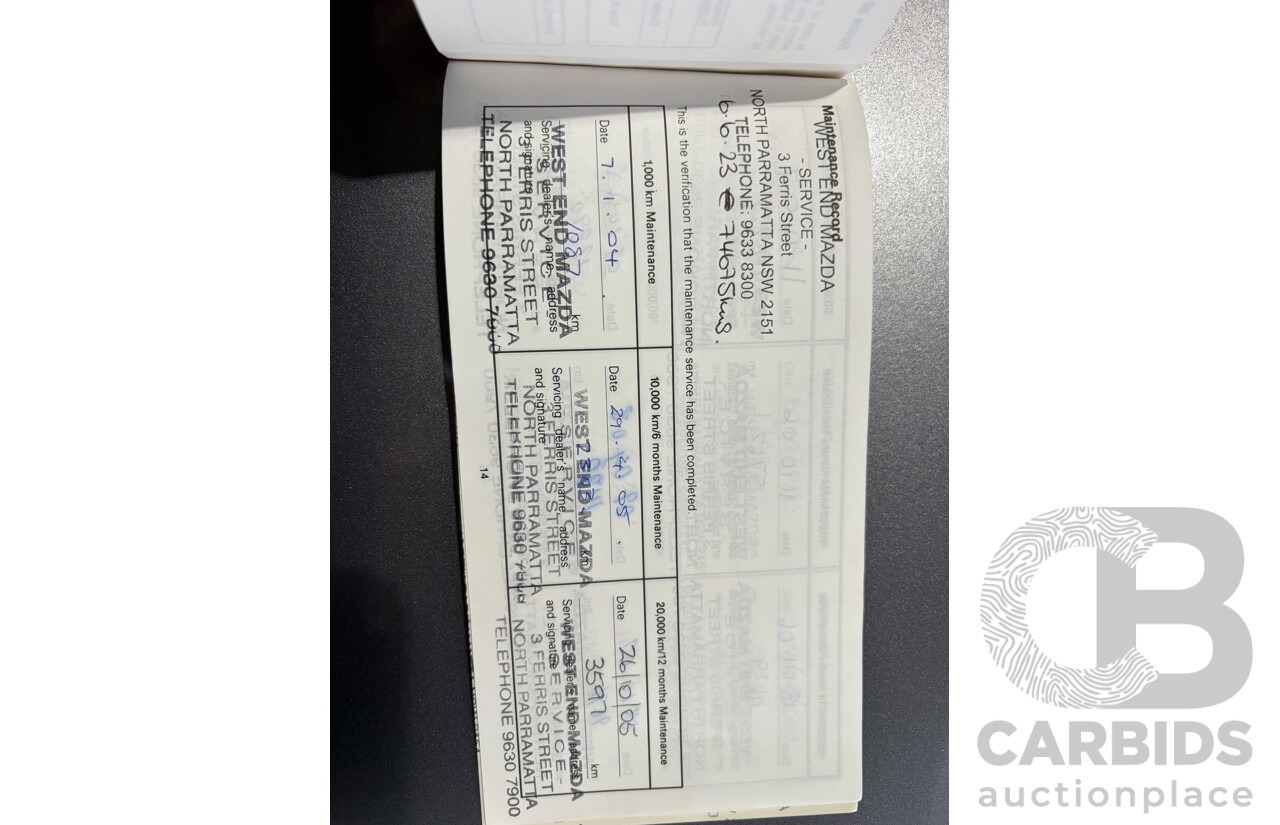 Maintenance Record
WEST END MAZDA
- SERVICE -
3 Ferris Street
NORTH PARRAMATTA NSW 2151
TELEPHONE: 9633 8300
6.6.23 74675kms.
This is the verification that the maintenance service has been completed.
1,000 km Maintenance
Date 7.11.04
1087 km
Servicing dealer's name, address
and signature
WEST END MAZDA
SERVICE
3 FERRIS STREET
NORTH PARRAMATTA
TELEPHONE 9630 7900
10,000 km/6 months Maintenance
Date 29.4.05
km
Servicing dealer's name, address
and signature
WEST END MAZDA
SERVICE
3 FERRIS STREET
NORTH PARRAMATTA
TELEPHONE 9630 7900
20,000 km/12 months Maintenance
Date 26/10/05
3597 km
Servicing dealer's name, address
and signature
WEST END MAZDA
- SERVICE -
3 FERRIS STREET
NORTH PARRAMATTA
TELEPHONE 9630 7900
14
CARBIDS
auctionplace